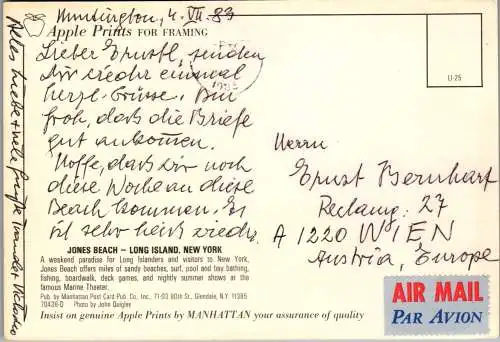 Huntington, 4. VII. 83
Apple Prints FOR FRAMING
Lieber Ernstl, senden
Dir wieder einmal
herzl. Grüsse. Bin
froh, dass die Briefe
gut ankommen.
Hoffe, dass wir noch
diese Woche an diese
Beach kommen. Es
ist sehr heiss wieder.
Alles Liebe + viele
U-25
Herrn
Ernst Bernhart
Reclamg. 27
A 1220 WIEN
Austria, Europe
JONES BEACH – LONG ISLAND, NEW YORK
A weekend paradise for Long Islanders and visitors to New York,
Jones Beach offers miles of sandy beaches, surf, pool and bay bathing,
fishing, boardwalk, deck games, and nightly summer shows at the
famous Marine Theater.
Pub. by Manhattan Post Card Pub. Co., Inc., 71-03 80th St., Glendale, N.Y. 11385
70436-D Photo by John Quigley
Insist on genuine Apple Prints by MANHATTAN your assurance of quality
AIR MAIL
PAR AVION